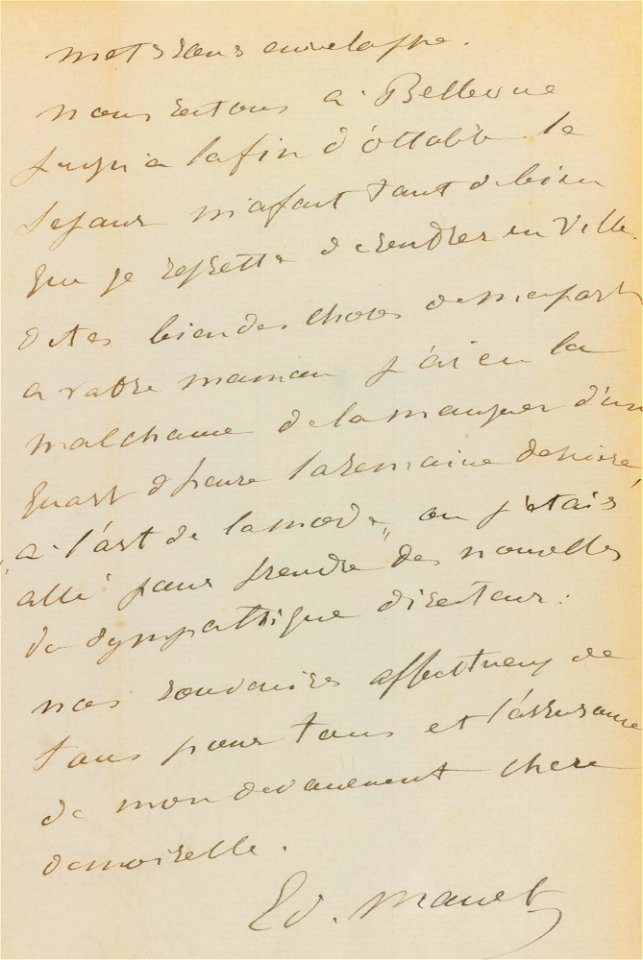 mets sous enveloppe.
nous restons a Bellevue
jusqu'a la fin d'octobre le
sejour m'a fait tant de bien
que je regrette de rentrer en ville.
dites bien des choses de ma part
a votre maman j'ai eu la
malchance de la manquer d'un
quart d'heure la semaine derniere
"a l'art de la mode" ou j'etais
allé pour prendre des nouvelles
du sympathique directeur.
nos souvenirs affectueux de
tous pour tous et l'assurance
de mon devouement chere
demoiselle.
Ed. Manet